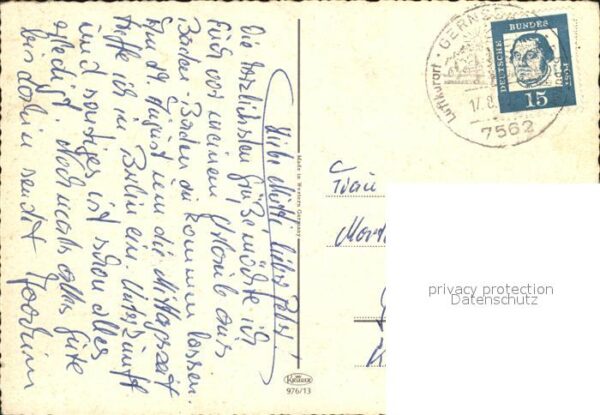 Liebe Mutti, lieber Papa!
Die herzlichsten Grüße möchte ich
Euch vor meinem Urlaub aus
Baden-Baden zukommen lassen.
Am 19. August um die Mittagszeit
treffe ich in Berlin ein. Unterkunft
und sonstiges ist schon alles
erledigt. Nochmals alles Gute
bis dahin sendet Joachim
Made in Western Germany
Krüger
976/13
Luftkurort · GERNS
17.8.
7562
DEUTSCHE BUNDES POST
15
Frau
privacy protection
Datenschutz